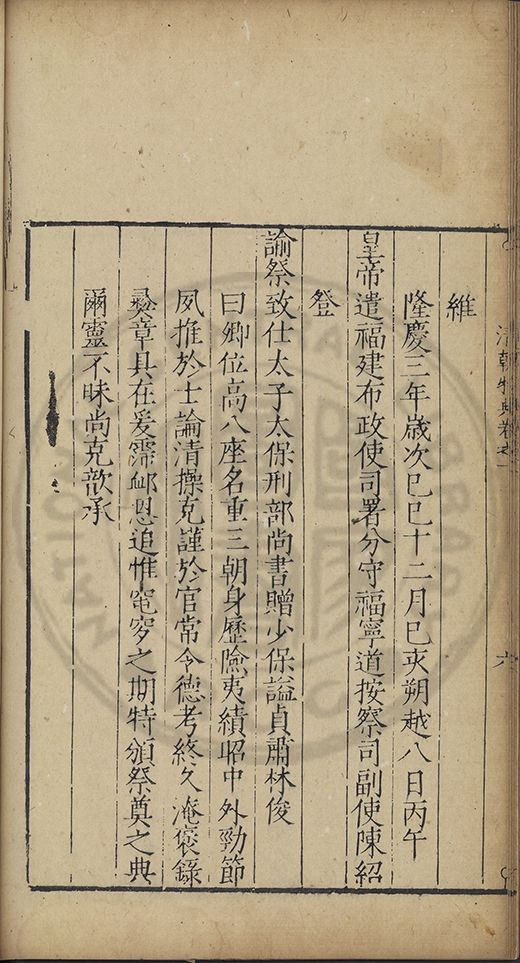 維
隆慶三年歲次己巳十二月己亥朔越八日丙午
皇帝遣福建布政使司署分守福寧道按察司副使陳紹
登
諭祭致仕太子太保刑部尚書贈少保謚貞肅林俊
曰卿位高八座名重三朝身歷險夷績昭中外勁節
夙推於士論清操克謹於官常令德考終久淹褒錄
彝章具在爰霈卹恩追惟窀穸之期特頒祭奠之典
爾靈不昧尚克歆承